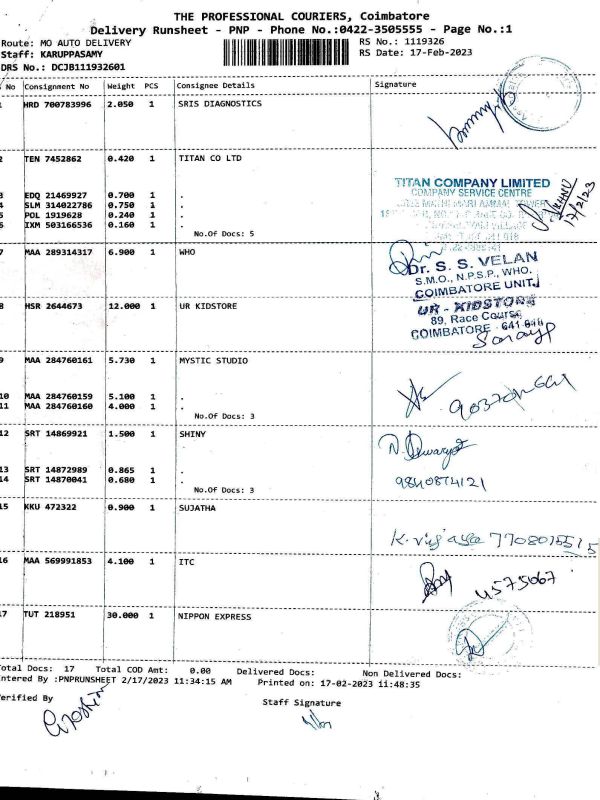 THE PROFESSIONAL COURIERS, Coimbatore
Delivery Runsheet - PNP - Phone No.:0422-3505555 - Page No.:1
Route: MO AUTO DELIVERY
RS No.: 1119326
Staff: KARUPPASAMY
RS Date: 17-Feb-2023
DRS No.: DCJB111932601
No Consignment No Weight PCS Consignee Details Signature
HRD 700783996 2.050 1 SRIS DIAGNOSTICS
2 TEN 7452862 0.420 1 TITAN CO LTD
TITAN COMPANY LIMITED
COMPANY SERVICE CENTRE
3 EDQ 21469927 0.700 1 .
4 SLM 314022786 0.750 1 .
5 POL 1919628 0.240 1 .
6 IXM 503166536 0.160 1 .
17/2/23
No.Of Docs: 5
7 MAA 289314317 6.900 1 WHO
Dr. S. S. VELAN
S.M.O., N.P.S.P., WHO.
COIMBATORE UNIT
8 HSR 2644673 12.000 1 UR KIDSTORE
UR - KIDSTORE
89, Race Course
COIMBATORE - 641 018
9 MAA 284760161 5.730 1 MYSTIC STUDIO
10 MAA 284760159 5.100 1 .
11 MAA 284760160 4.000 1 .
No.Of Docs: 3
12 SRT 14869921 1.500 1 SHINY
13 SRT 14872989 0.865 1 .
14 SRT 14870041 0.680 1 .
9840874121
No.Of Docs: 3
15 KKU 472322 0.900 1 SUJATHA
K. vijaya 7708015515
16 MAA 569991853 4.100 1 ITC
4575067
17 TUT 218951 30.000 1 NIPPON EXPRESS
Total Docs: 17 Total COD Amt: 0.00 Delivered Docs: Non Delivered Docs:
Entered By :PNPRUNSHEET 2/17/2023 11:34:15 AM Printed on: 17-02-2023 11:48:35
Verified By
Staff Signature